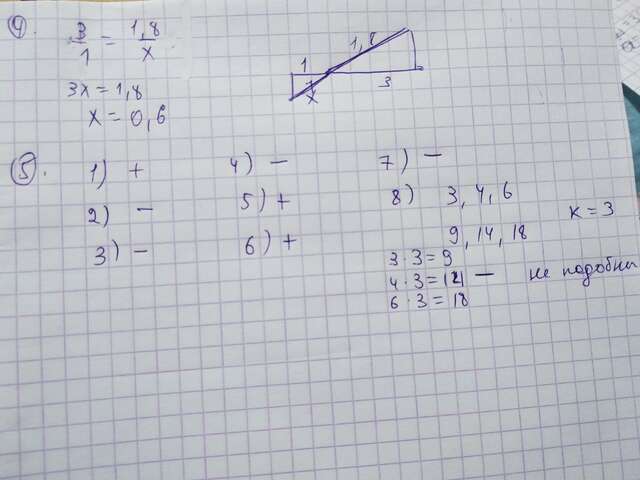 4.
3/1 = 1,8/x
3x = 1,8
x = 0,6
1 1,8
x 3
5.
1) + 4) – 7) –
2) – 5) + 8) 3, 4, 6
3) – 6) + 9, 14, 18 k = 3
3 · 3 = 9
4 · 3 = 12 – не подобны
6 · 3 = 18